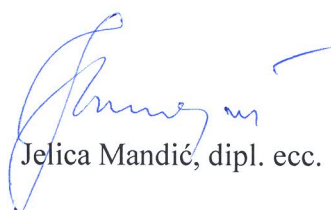 Jelica Mandić, dipl. ecc.